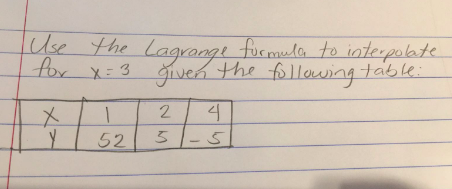 Use the Lagrange formula to interpolate
for x = 3 given the following table:
X 1 2 4
Y 52 5 -5